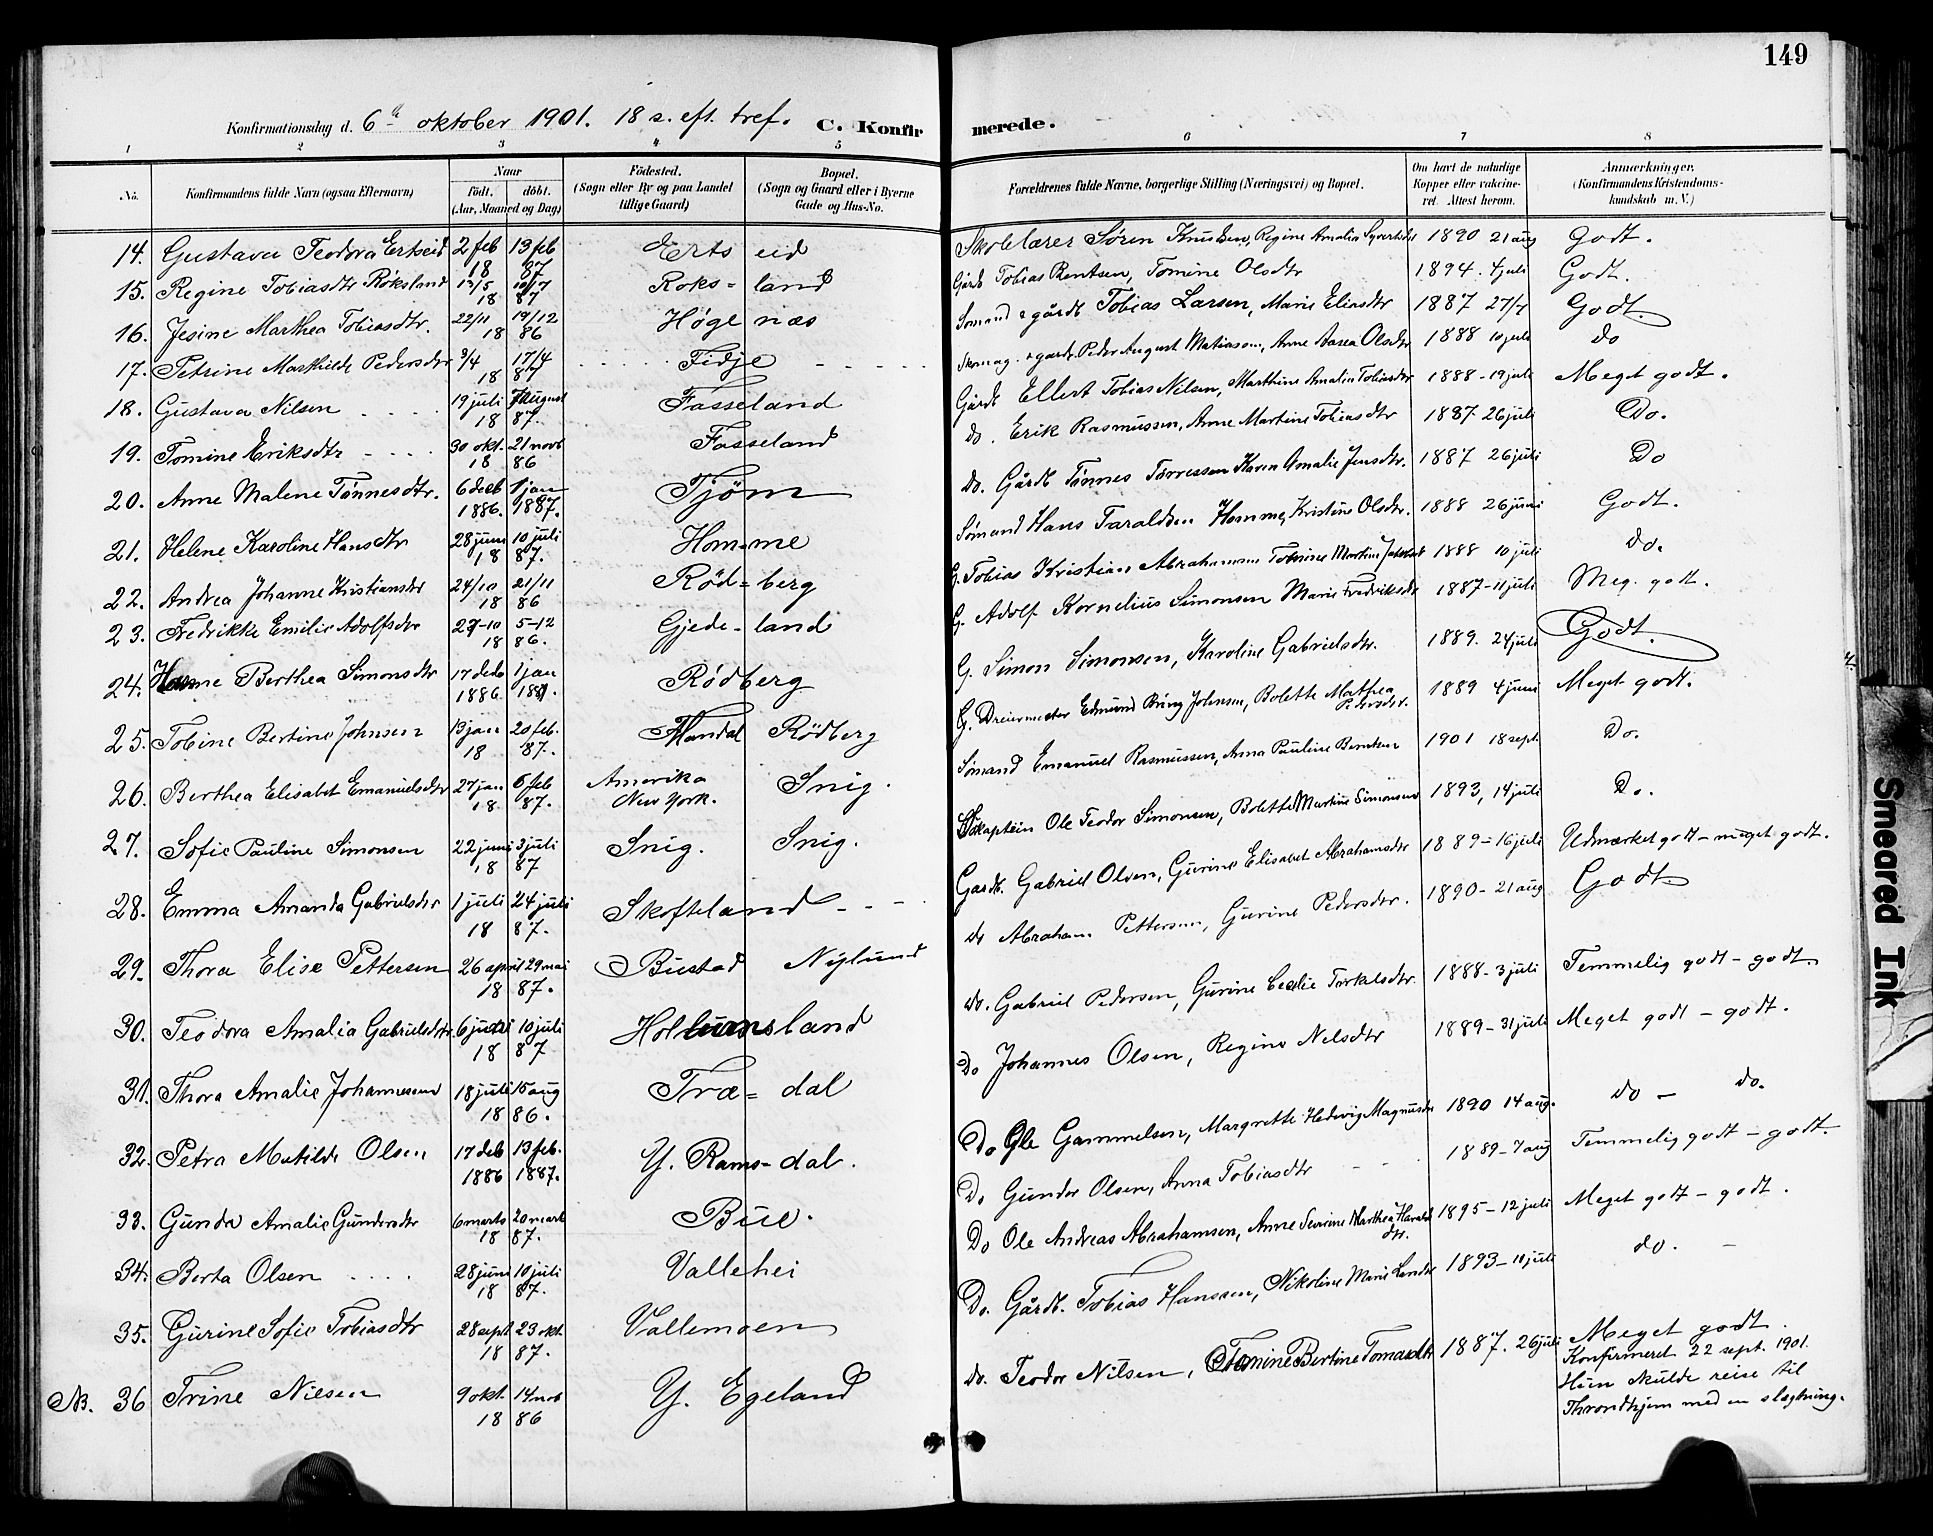 149
Konfirmationsdag d. 6te oktober 1901. 18 s. eft. tref. C. Konfirmerede.
1 2 3 4 5 6 7 8
No. Konfirmandens fulde Navn (ogsaa Efternavn) Naar født. døbt. (Aar, Maaned og Dag) Fødested. (Sogn eller By og paa Landet tillige Gaard) Bopæl. (Sogn og Gaard eller i Byerne Gade og Hus-No. Forældrenes fulde Navne, borgerlige Stilling (Næringsvei) og Bopæl. Om havt de naturlige Kopper eller vakcineret. Attest herom. Anmærkninger. (Konfirmandens Kristendomskundskab m. V.)
14. Gustava Teodora Ertseid 2 feb 13 feb 18 87 Ertseid Skolelærer Sören Knudsen, Regine Amalia Syvertsdtr 1890 21 aug Godt.
15. Regine Tobiasdtr Röksland 18 87 Roks-land Gårdb Tobias Bentsen, Tomine Olsdtr 1894. 4 juli Godt.
16. Jesine Marthea Tobiasdtr. 22/11 19/12 18 86 Högenæs Sömand & gårdb Tobias Larsen, Marie Eliasdtr 1887 27/7 Godt.
17. Petrine Mathilde Pedersdtr 3/4 17/4 18 87 Fidje Skomag. & gardb. Peder August Matiasen, Anne Aasea Olsdtr 1888 10 juli do
18. Gustava Nilsen 19 juli 7 August 18 87. Fasseland Gårdb Ellert Tobias Nilsen, Marthine Amalia Tobiasdtr 1888 - 19 juli Meget godt.
19. Tomine Eriksdtr 30 okt. 21 novb 18 86 Fasseland do. Erik Rasmussen, Anne Martine Tobiasdtr 1887 26 juli Do.
20. Anne Malene Tönnesdtr. 6 decb 1 jan 1886. 1887. Tjöm Do. Gårdb Tönnes Törressen Karen Amalie Jensdtr. 1887 26 juli Do
21. Helene Karoline Hansdtr 28 juni 10 juli 18 87. Homme Sömand Hans Taraldsen Homme, Kristine Olsdtr. 1888 26 juni Godt.
22. Andrea Johanne Kristiansdtr 24/10 21/11 18 86 Röd-berg G. Tobias Kristian Abrahamsen Tomine Martine 1888 10 juli do.
23. Fredrikke Emilie Adolfsdtr 27-10 5-12 18 86. Gjede-land G. Adolf Kornelius Simonsen Marie Fredriksdtr 1887 - 11 juli Meg. godt.
24. Hanne Berthea Simonsdtr 17 decb 1 jan 1886 1887. Rödberg G. Simon Simonsen, Karoline Gabrielsdtr. 1889. 24 juli Godt.
25. Tobine Bertine Johnsen 13 jan 20 feb. 18 87. Mandal Rödberg G. Dreiermester Edmund Bring Johnsen, Bolette Mathea Pedersdtr. 1889 4 juni Meget godt.
26. Berthea Elisabet Emanuelsdtr 27 jan 6 feb 18 87. Amerika New York. Snig. Sömand Emanuel Rasmussen, Anna Pauline Berntsen 1901 18 sept. Do.
27. Sofie Pauline Simonsen 22 juni 3 juli 18 87 Snig. Snig. Skaptein Ole Teodor Simonsen, Bolette Martine Simonsen 1893, 14 juli Do.
28. Emma Amanda Gabrielsdtr 1 juli 24 juli 18 87. Skofteland Gardb. Gabriel Olsen, Gurine Elisabet Abrahamsdtr 1889 - 16 juli Udmærket godt - meget godt.
29. Thora Elise Pettersen 26 april 29 mai 18 87. Bustad Nylund do Abraham Pettersen, Gurine Pedersdtr. 1890 - 21 aug Godt
30. Teodora Amalia Gabrielsdtr. 6 juni 10 juli 18 87 Holumsland do. Gabriel Pedersen, Gurine Cecilie Torkelsdtr. 1888 - 3 juli Temmelig godt - godt.
31. Thora Amalie Johannessen 18 juli 15 aug 18 86. Træ-dal Do Johannes Olsen, Regine Nelsdtr 1889 - 31 juli Meget godt - godt.
32. Petra Matilde Olsen 17 deb 13 feb. 1886 1887. Y. Rams-dal. Do Ole Gammelsen, Margrethe Hedevig Magnusdtr 1890 14 aug. do - do.
33. Gunda Amalie Gundersdtr 6 marts 20 marts 18 87. Bue. Do Gunder Olsen, Anna Tobiasdtr 1889 - 7 aug Temmelig godt - godt.
34. Berta Olsen 28 juni 10 juli 18 87. Vallehei Do Ole Andreas Abrahamsen, Anne Severine Marthea Haralddtr. 1895 - 12 juli Meget godt - godt.
35. Gurine Sofie Tobiasdtr 28 sept 23 okt. 18 87. Vallemoen Do. Gårdb. Tobias Hanssen, Nikoline Marie 1893 - 11 juli do. -
NB. 36 Trine Nilsen 9 okt. 14 nov 18 86 Y. Egeland do. Teodor Nilsen, Tomine Bertine Tomasdtr 1887. 26 juli Meget godt.
Konfirmeret 22 sept. 1901.
Hun skulde reise til
Throndhjem med en slægtning.
Smeared Ink